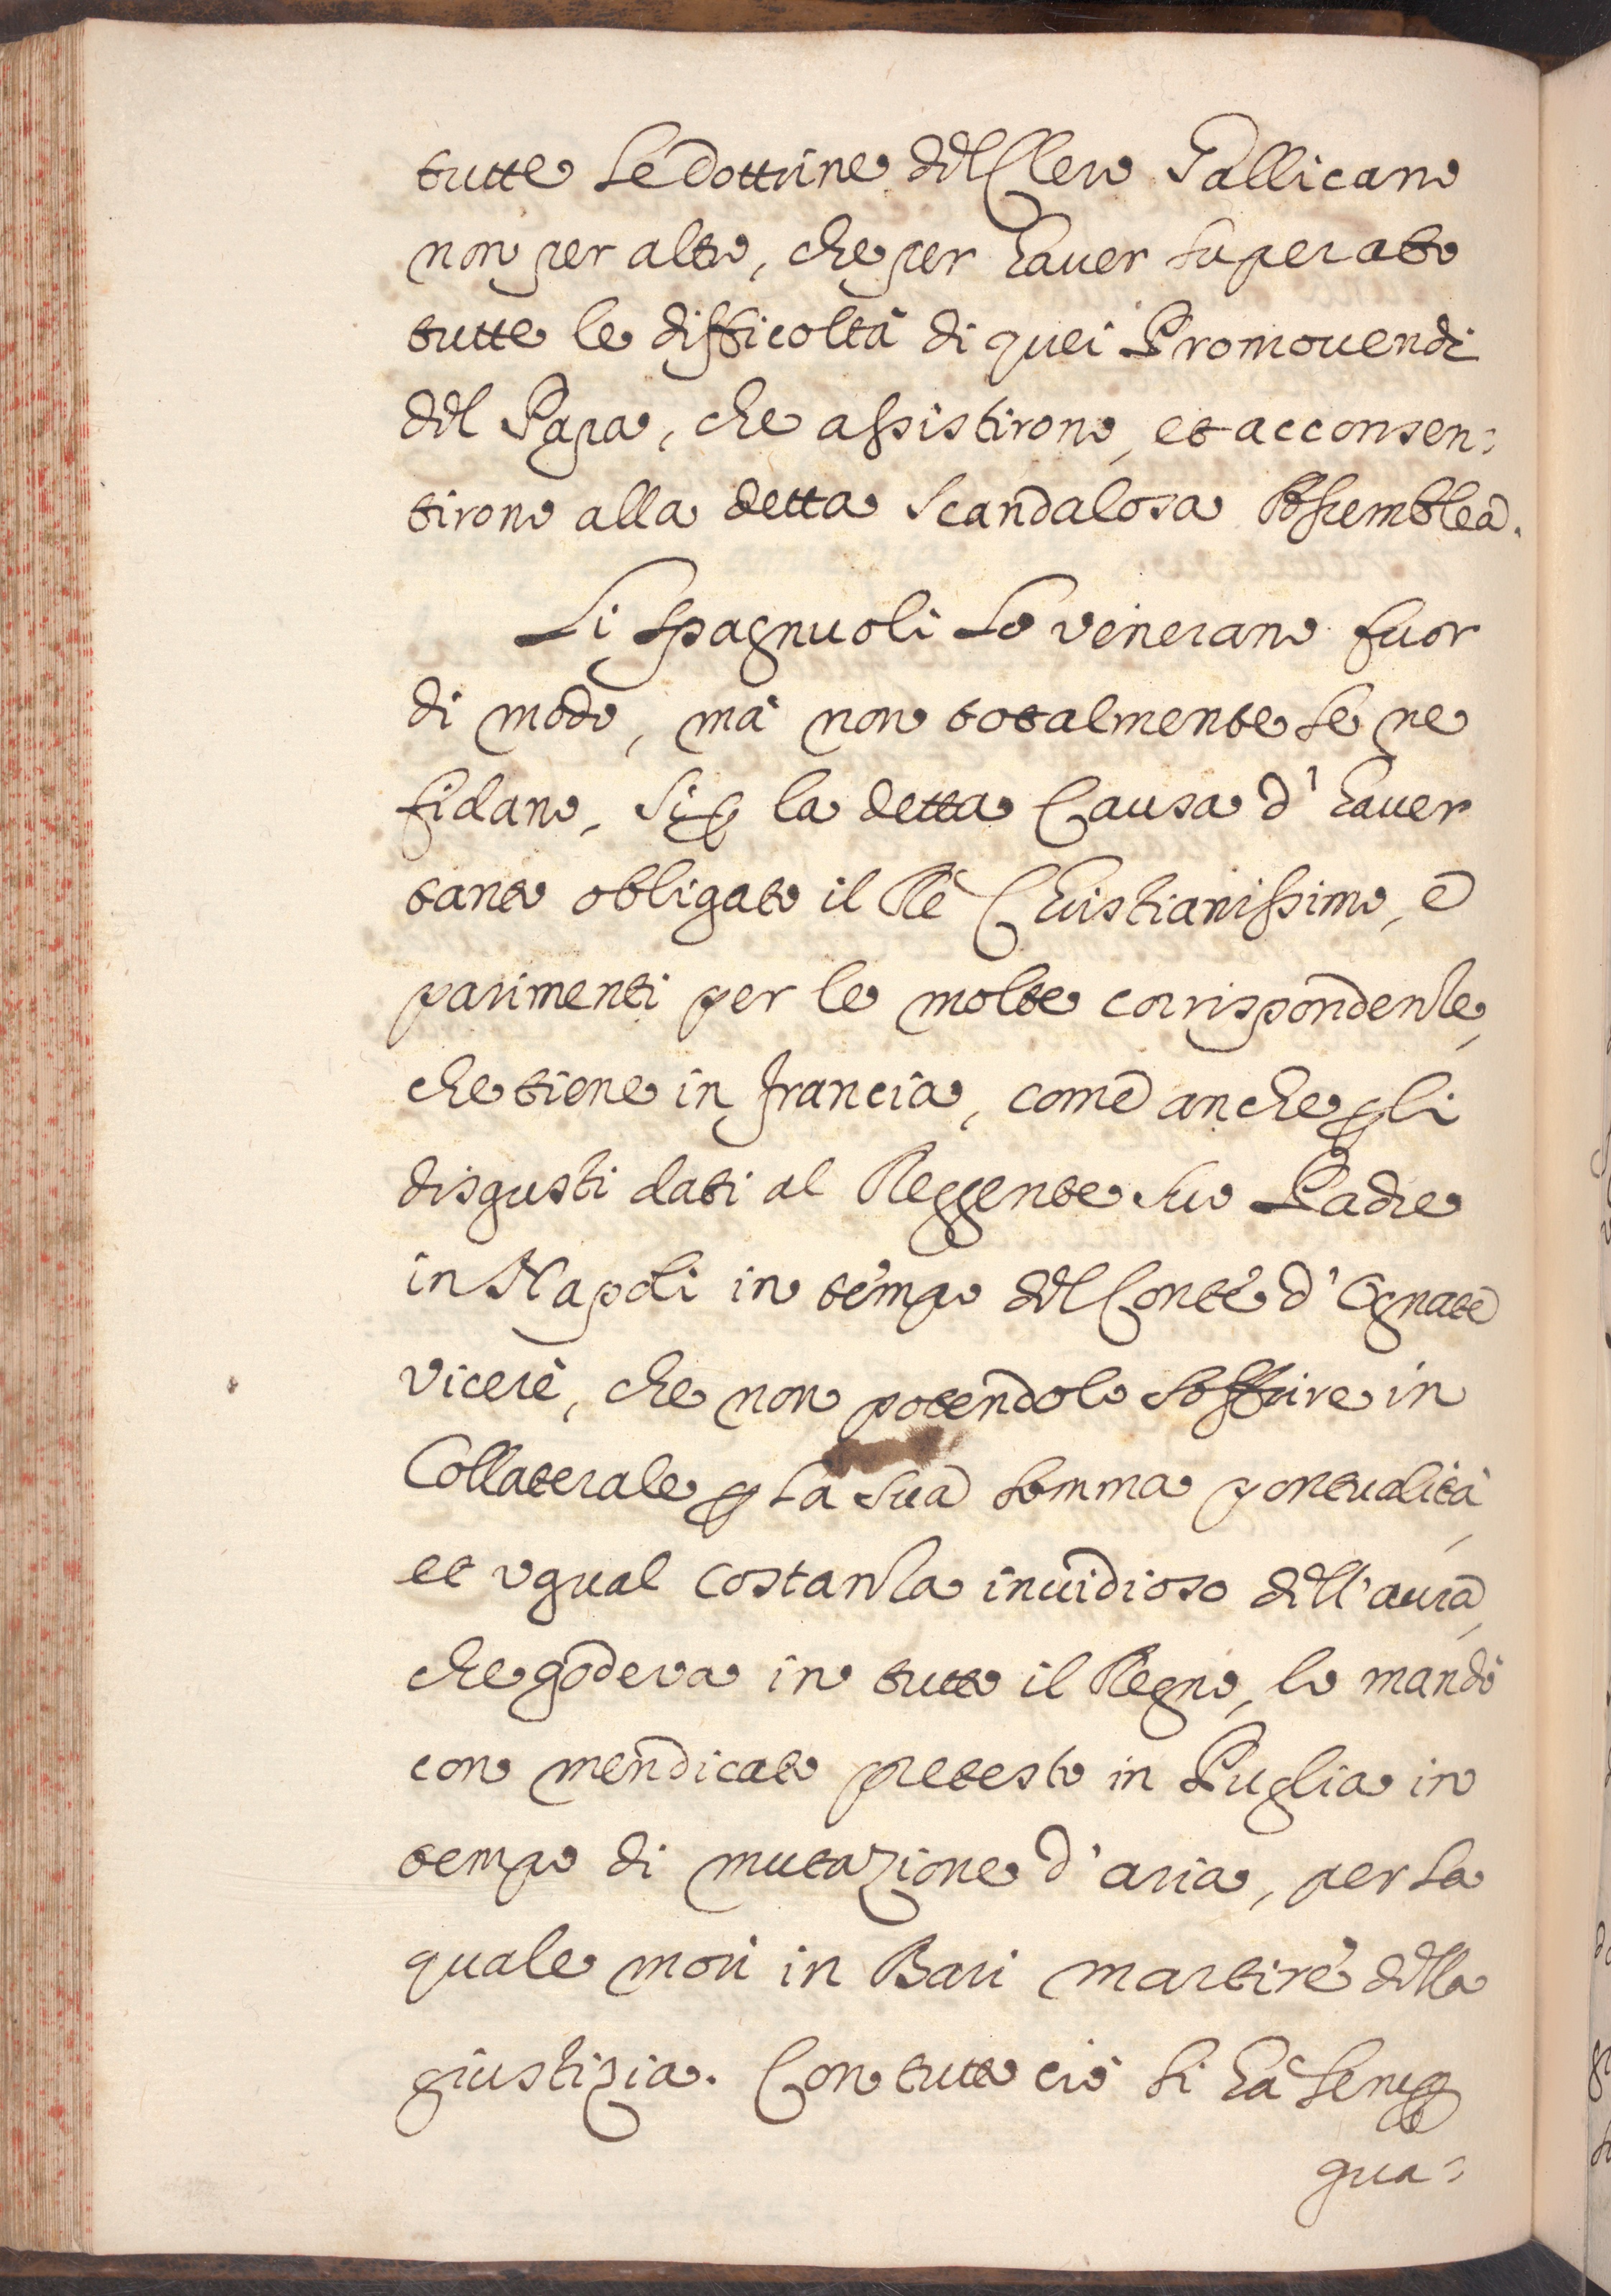 tutte le Dottrine del Clero Gallicano
non per altro, che per hauer superato
tutte le difficoltà di quei Promouendi
del Papa, che assistirono, et acconsen:
tirono alla detta scandalosa Assemblea.
Li Spagnuoli lo venerano fuor
di modo, mà non totalmente se ne
fidano, si ꝑ la detta Causa d'hauer
tanto obligato il Rè Christianissimo, e
parimenti per le molte corrispondenze,
che tiene in Francia, come anche ꝑ li
disgusti dati al Reggente suo Padre
in Napoli in tempo del Conte d'Ognate
vicerè, che non potendolo soffrire in
Collaterale ꝑ la sua somma pontualità,
et vgual costanza inuidioso dell'aura,
che godeva in tutto il Regno, lo mandò
con mendicato pretesto in Puglia in
tempo di mutazione d'aria, per la
quale morì in Bari martire della
giustizia. Con tutto ciò si hà semꝑ
gua: